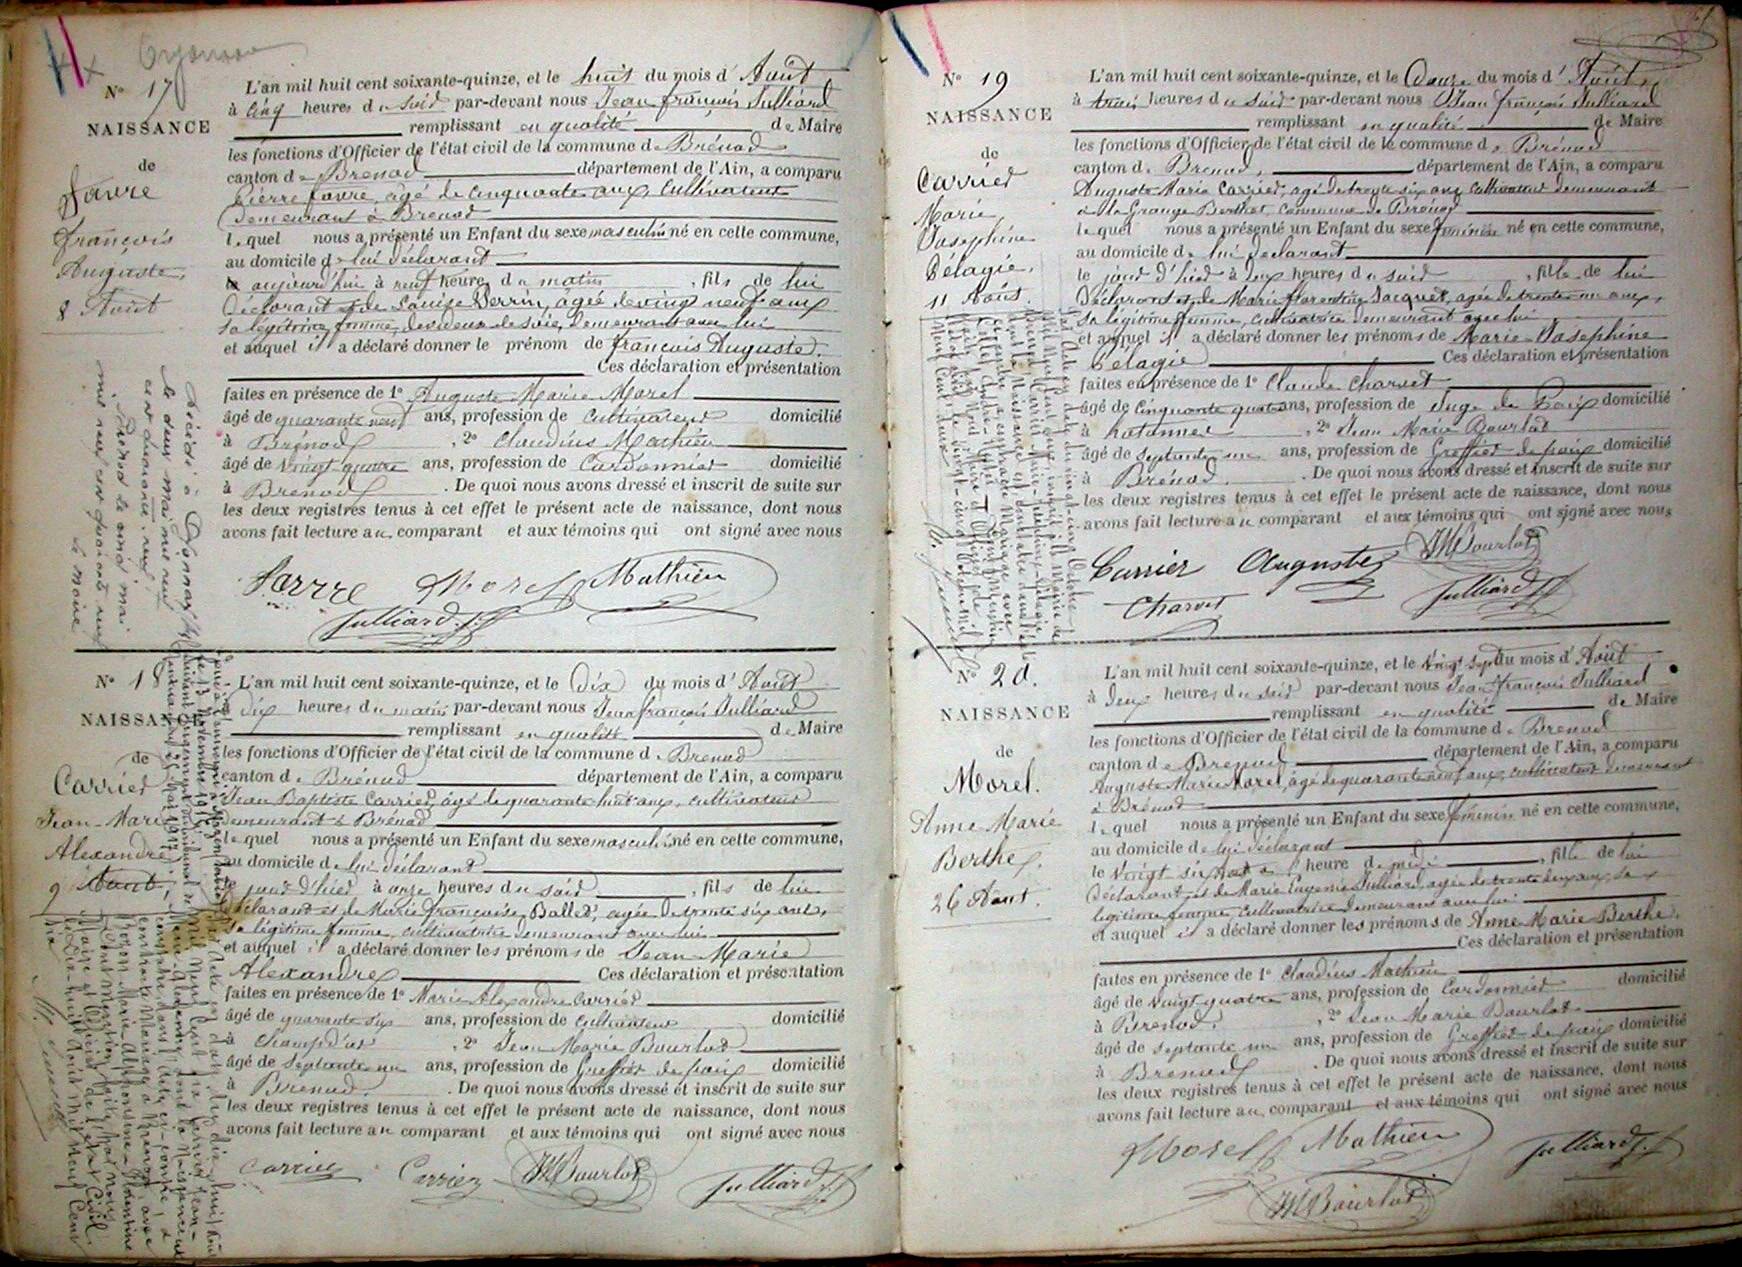 Oyonnax
N° 17
NAISSANCE
de
Favre
François
Auguste
8 Août
L'an mil huit cent soixante-quinze, et le huit du mois d' Août
à cinq heures du soir par-devant nous Jean françois Julliard
remplissant en qualité de Maire
les fonctions d'Officier de l'état civil de la commune de Brénod
canton de Brénod département de l'Ain, a comparu
Pierre favre, âgé de cinquante ans, Cultivateur
demeurant à Brénod
lequel nous a présenté un Enfant du sexe masculin né en cette commune,
au domicile de lui déclarant
aujourd'hui à neuf heures du matin, fils de lui
Déclarant et de Louise Perrin, agée de vingt neuf ans
sa légitime femme, devideuse de soie, demeurant avec lui
et auquel il a déclaré donner le prénom de françois Auguste.
Ces déclaration et présentation
faites en présence de 1° Auguste Marie Morel
âgé de quarante neuf ans, profession de cultivateur domicilié
à Brénod, 2° Claudius Mathieu
âgé de vingt quatre ans, profession de Cordonnier domicilié
à Brenod. De quoi nous avons dressé et inscrit de suite sur
les deux registres tenus à cet effet le présent acte de naissance, dont nous
avons fait lecture au comparant et aux témoins qui ont signé avec nous
Favre Morel Mathieu
Julliard J. f.
Décédé à Oyonnax
le deux mai mil neuf
cent quarante neuf
Brénod le onze mai
mil neuf cent quarante neuf
Le maire
N° 18
NAISSANCE
de
Carrier
Jean-Marie
Alexandre
9 Août
L'an mil huit cent soixante-quinze, et le Dix du mois d' Août
à dix heures du matin par-devant nous Jean françois Julliard
remplissant en qualité de Maire
les fonctions d'Officier de l'état civil de la commune de Brenod
canton de Brénod département de l'Ain, a comparu
Jean Baptiste Carrier, âgé de quarante huit ans, cultivateur
demeurant à Brénod
lequel nous a présenté un Enfant du sexe masculin né en cette commune,
au domicile de lui déclarant
le jour d'hier à onze heures du soir, fils de lui
déclarant et de Marie françoise Ballet, agée de trente six ans,
sa légitime femme, cultivatrice demeurant avec lui
et auquel il a déclaré donner les prénoms de Jean Marie
Alexandre Ces déclaration et présentation
faites en présence de 1° Marie Alexandre Carrier
âgé de quarante six ans, profession de cultivateur domicilié
à Champdor, 2° Jean Marie Bourlod
âgé de septante un ans, profession de Greffier de paix domicilié
à Brenod. De quoi nous avons dressé et inscrit de suite sur
les deux registres tenus à cet effet le présent acte de naissance, dont nous
avons fait lecture au comparant et aux témoins qui ont signé avec nous
Carrier Carrier JM Bourlod Julliard J. f.
N° 19
NAISSANCE
de
Carrier
Marie
Josephine
Pélagie.
11 Août.
L'an mil huit cent soixante-quinze, et le Douze du mois d' Août
à trois heures du soir par-devant nous Jean françois Julliard
remplissant en qualité de Maire
les fonctions d'Officier de l'état civil de la commune de Brénod
canton de Brenod, département de l'Ain, a comparu
Auguste Marie Carrier, agé de trente six ans cultivateur demeurant
à la Grange Berthet, commune de Brénod
lequel nous a présenté un Enfant du sexe féminin né en cette commune,
au domicile de lui déclarant
le jour d'hier à deux heures du soir, fille de lui
Déclarant et de Marie florentine Jacquet, agée de trente un ans,
sa légitime femme, cultivatrice demeurant avec lui
et auquel il a déclaré donner les prénoms de Marie Josephine
Pélagie Ces déclaration et présentation
faites en présence de 1° Claude Charvet
âgé de cinquante quatre ans, profession de Juge de Paix domicilié
à hotonnes, 2° Jean Marie Bourlod
âgé de septante un ans, profession de Greffier de paix domicilié
à Brénod. De quoi nous avons dressé et inscrit de suite sur
les deux registres tenus à cet effet le présent acte de naissance, dont nous
avons fait lecture au comparant et aux témoins qui ont signé avec nous
Carrier Auguste JM Bourlod
Charvet Julliard J. f.
N° 20.
NAISSANCE
de
Morel.
Anne Marie
Berthe.
26 Août.
L'an mil huit cent soixante-quinze, et le vingt sept du mois d' Août
à deux heures du soir par-devant nous Jean françois Julliard
remplissant en qualité de Maire
les fonctions d'Officier de l'état civil de la commune de Brenod
canton de Brenod département de l'Ain, a comparu
Auguste Marie Morel, âgé de quarante neuf ans, cultivateur demeurant
à Brénod
lequel nous a présenté un Enfant du sexe féminin né en cette commune,
au domicile de lui déclarant
le vingt six Août à heure de midi, fille de lui
Déclarant et de Marie Eugenie Julliard, agée de trente deux ans, sa
legitime femme, cultivatrice demeurant avec lui
et auquel il a déclaré donner les prénoms de Anne Marie Berthe.
Ces déclaration et présentation
faites en présence de 1° Claudius Mathieu
âgé de vingt quatre ans, profession de Cordonnier domicilié
à Brenod, 2° Jean Marie Bourlod
âgé de septante un ans, profession de Greffier de paix domicilié
à Brenod. De quoi nous avons dressé et inscrit de suite sur
les deux registres tenus à cet effet le présent acte de naissance, dont nous
avons fait lecture au comparant et aux témoins qui ont signé avec nous
Morel Mathieu Julliard J. f.
JM Bourlod